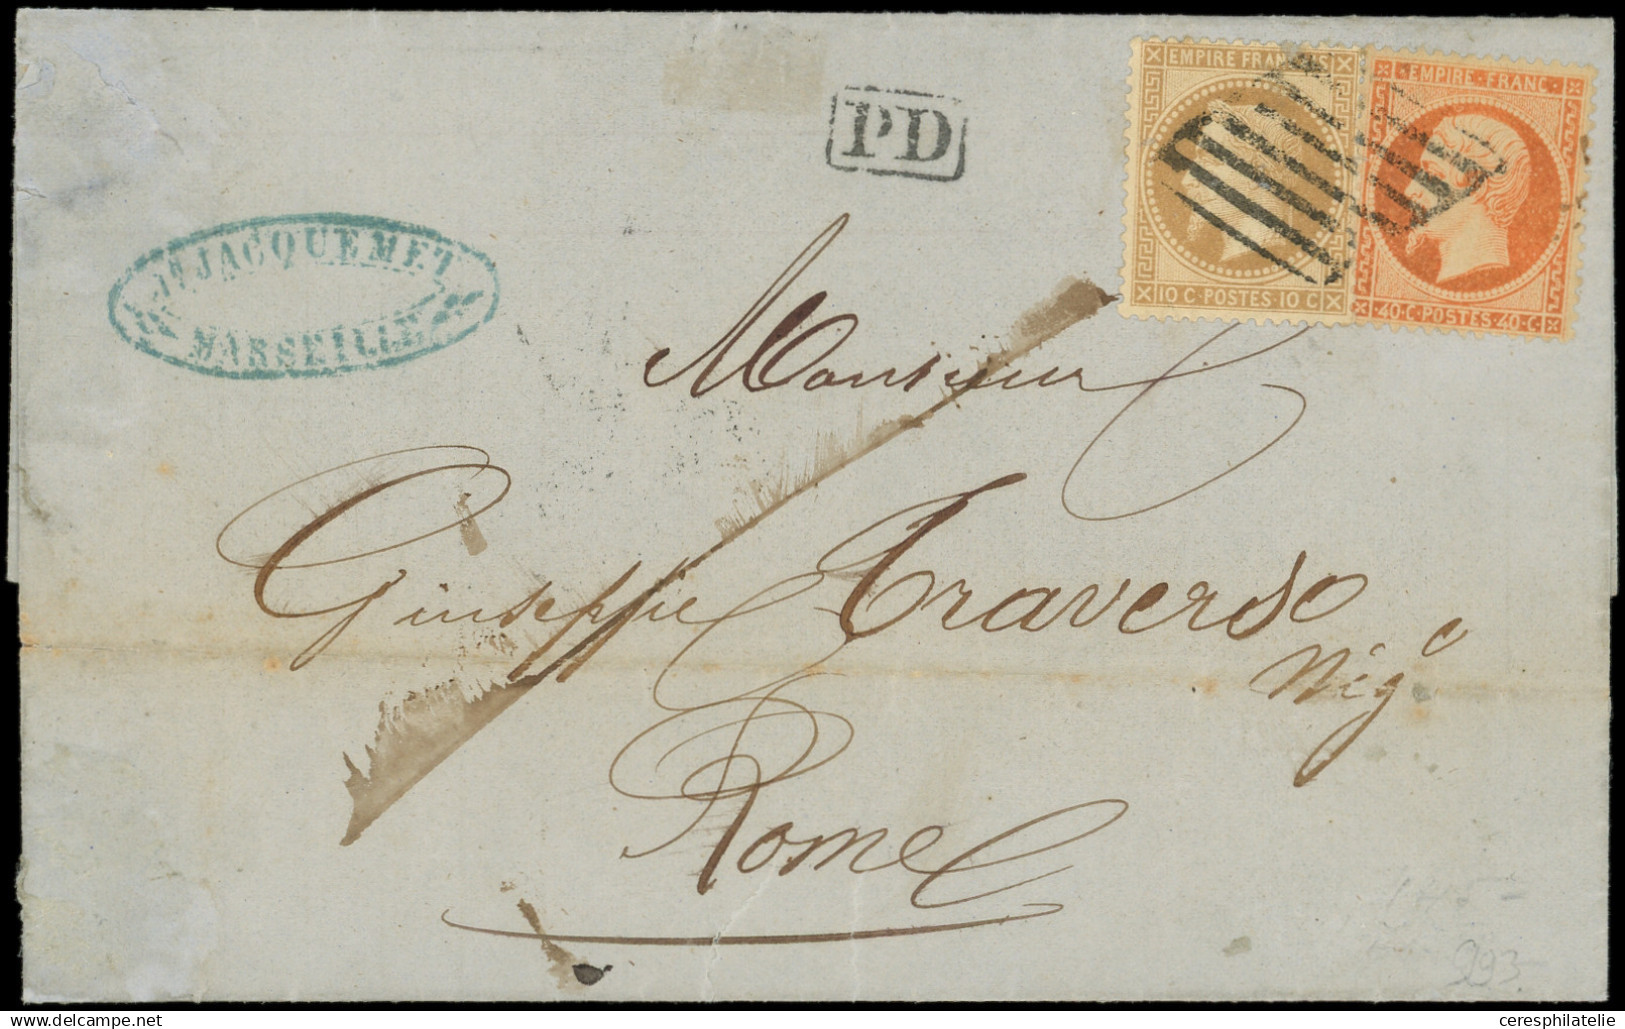 EMPIRE FRANÇAIS
EMPIRE·FRANC·
PD
JACQUEMET
MARSEILLE
10 C·POSTES·10 C
·40·C·POSTES·40·C·
Monsieur
Giuseppe Traverso
Nég.e
Rome
293
delcampe.net
ceresphilatelie